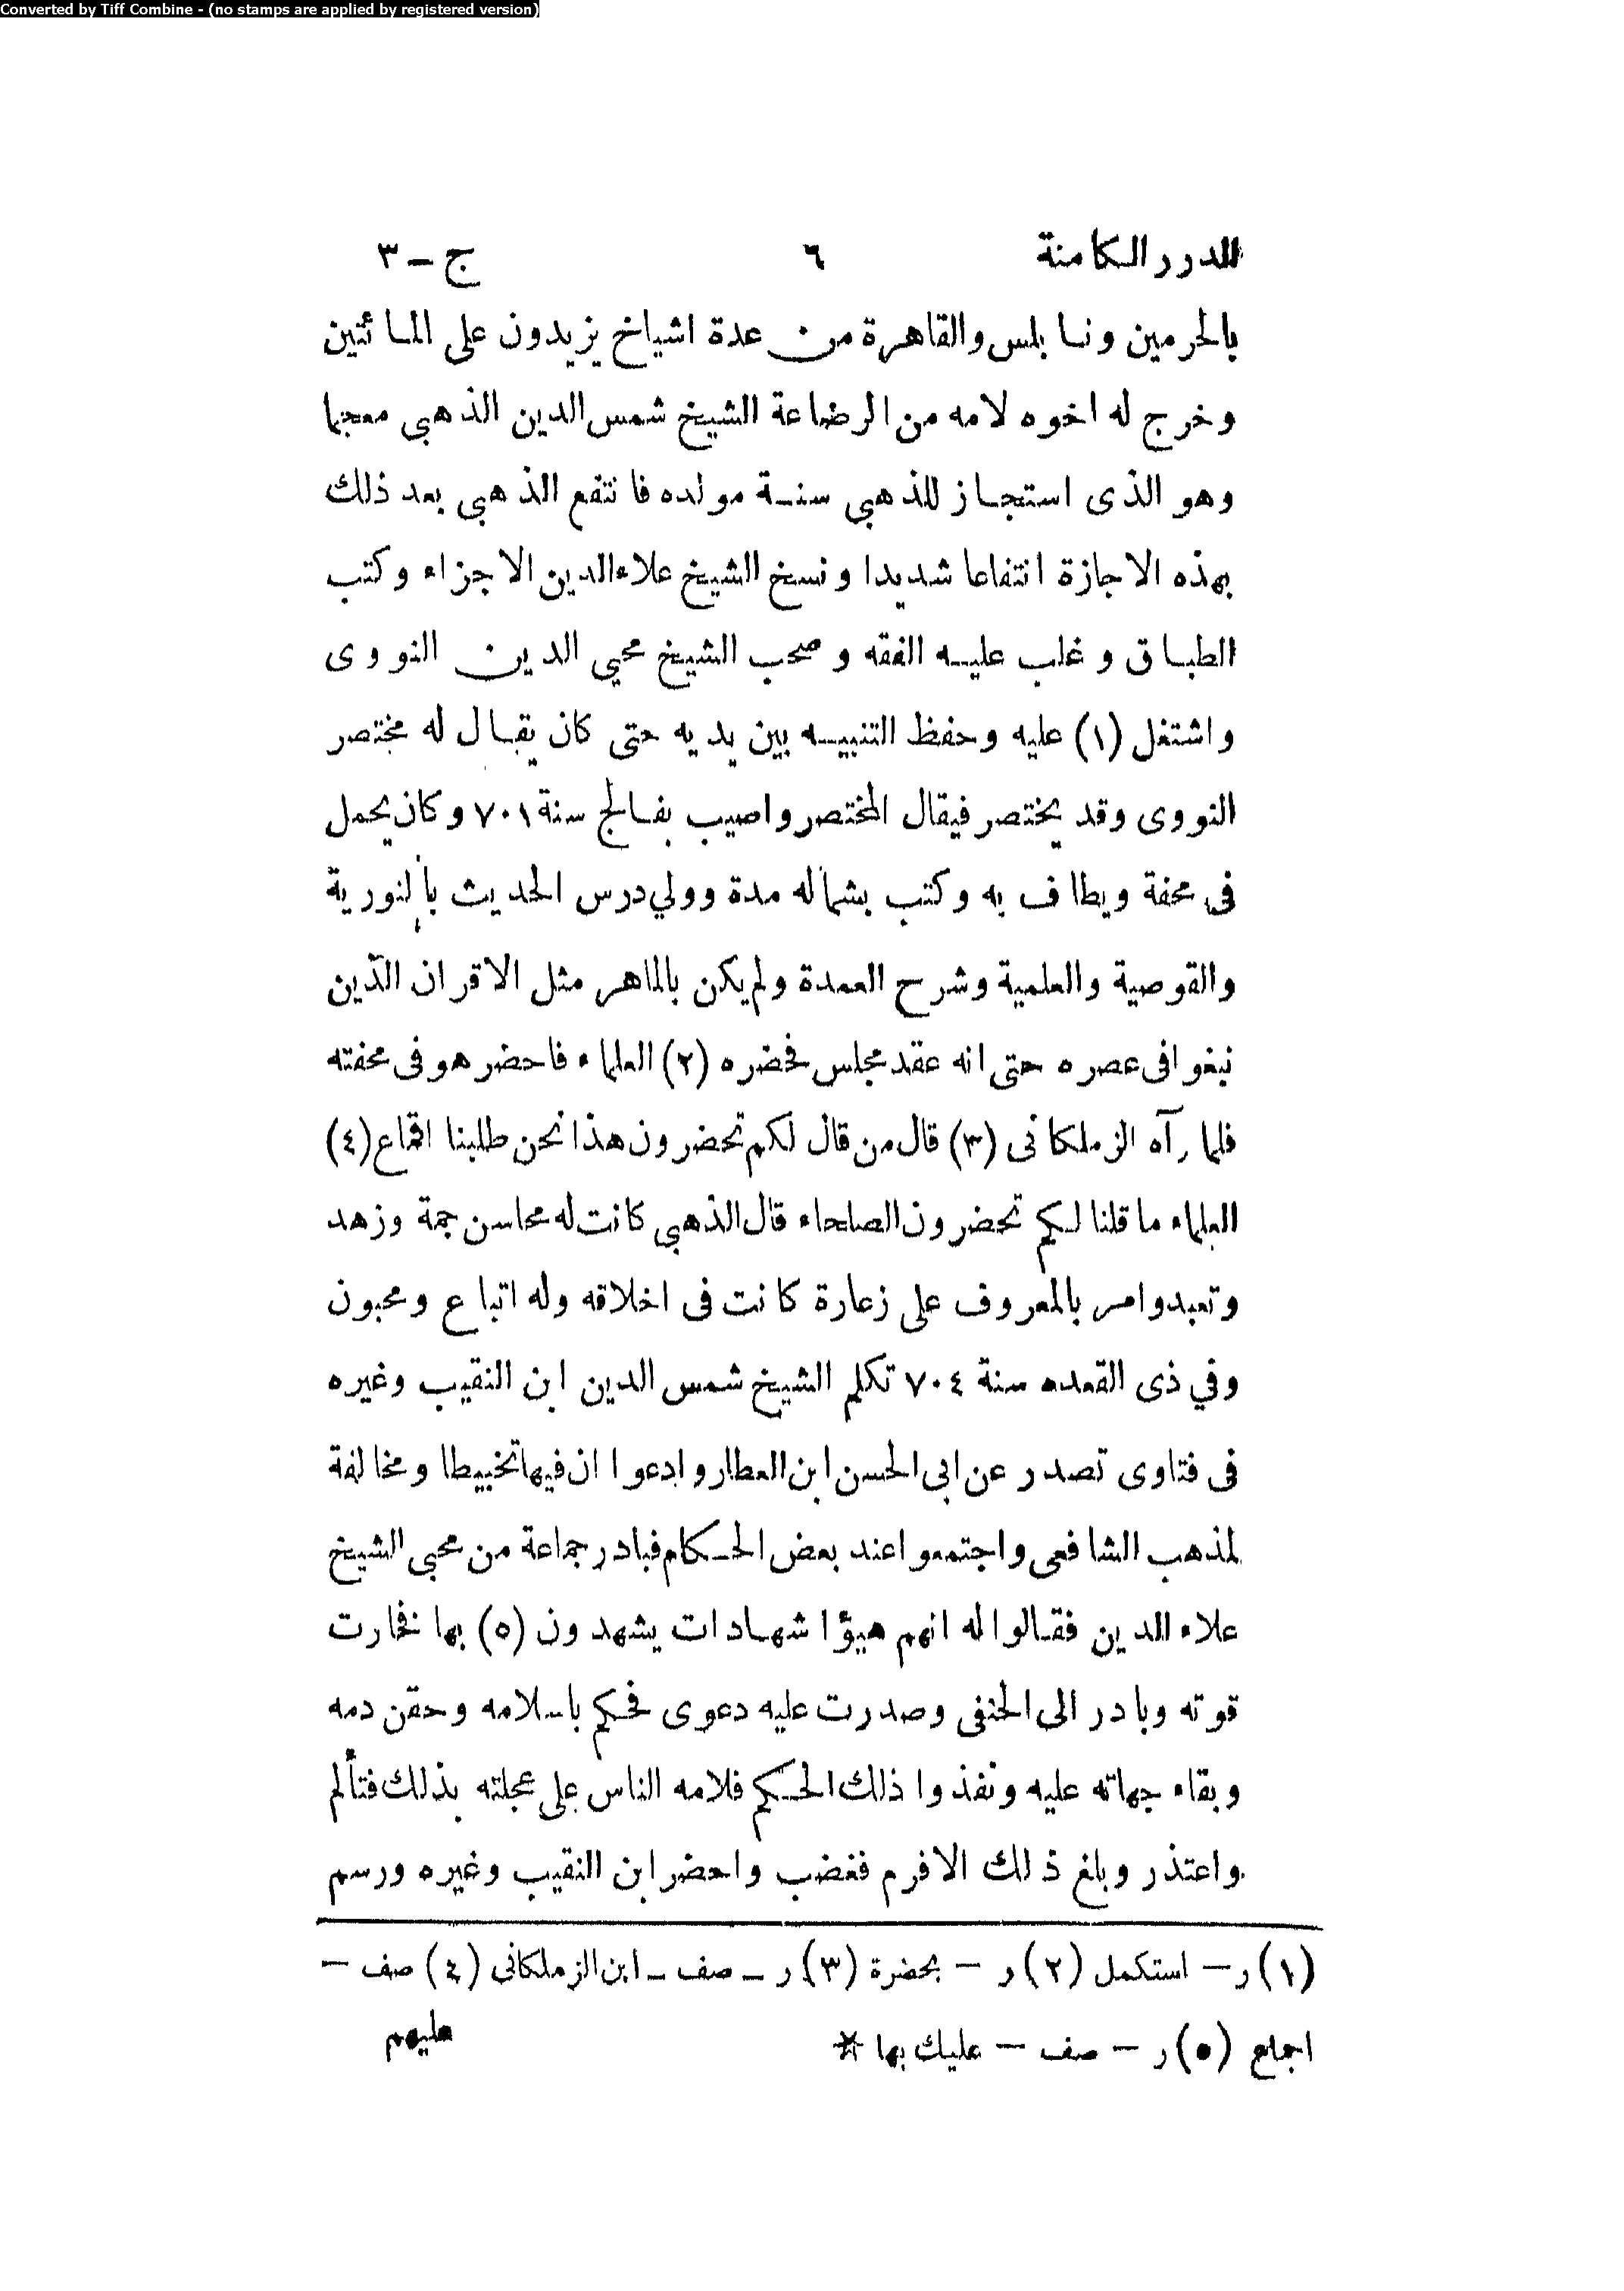 Converted by Tiff Combine - (no stamps are applied by registered version)
الدرر الكامنة ٦ ج – ٣
بالحرمين ونابلس والقاهرة من عدة اشياخ يزيدون على المائتين
وخرج له اخوه لامه من الرضاعة الشيخ شمس الدين الذهبى معجما
وهو الذى استجاز للذهبى سنة مولده فانتفع الذهبى بعد ذلك
بهذه الاجازة انتفاعا شديدا ونسخ الشيخ علاء الدين الاجزاء وكتب
الطباق وغلب عليه الفقه وصحب الشيخ محيى الدين النووى
واشتغل (١) عليه وحفظ التنبيه بين يديه حتى كان يقال له مختصر
النووى وقد يختصر فيقال المختصر واصيب بفالج سنة ٧٠١ وكان يحمل
فى محفة ويطاف به وكتب بشماله مدة وولي درس الحديث بالنورية
والقوصية والعلمية وشرح العمدة ولم يكن بالماهر مثل الاقران الذين
نبغوا فى عصره حتى انه عقد مجلس فحضره (٢) العلماء فاحضر هو فى محفته
فلما رآه الزملكانى (٣) قال من قال لكم تحضرون هذا نحن طلبنا اقماع (٤)
العلماء ما قلنا لكم تحضرون الصلحاء قال الذهبى كانت له محاسن جمة وزهد
وتعبد وامر بالمعروف على زعارة كانت فى اخلاقه وله اتباع ومحبون
وفي ذى القعده سنة ٧٠٤ تكلم الشيخ شمس الدين ابن النقيب وغيره
فى فتاوى تصدر عن ابى الحسن ابن العطار وادعوا ان فيها تخبيطا ومخالفة
لمذهب الشافعى واجتمعوا عند بعض الحكام فبادر جماعة من محبى الشيخ
علاء الدين فقالوا له انهم هيؤا شهادات يشهدون (٥) بها فخارت
قوته وبادر الى الحنفى وصدرت عليه دعوى فحكم باسلامه وحقن دمه
وبقاء جهاته عليه ونفذوا ذلك الحكم فلامه الناس على عجلته بذلك فتألم
واعتذر وبلغ ذلك الافرم فغضب واحضر ابن النقيب وغيره ورسم
(١) ر – استكمل (٢) ر – بحضرة (٣) ر – صف – ابن الزملكانى (٤) صف –
اجماع (٥) ر – صف – عليك بها * عليهم